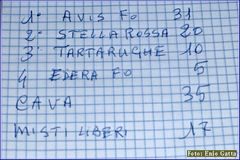 1° AVIS FO 31
2° STELLA ROSSA 20
3° TARTARUGHE 10
4 EDERA FO 5
CAVA 35
MISTI LIBERI 17
Foto: Enio Gatta